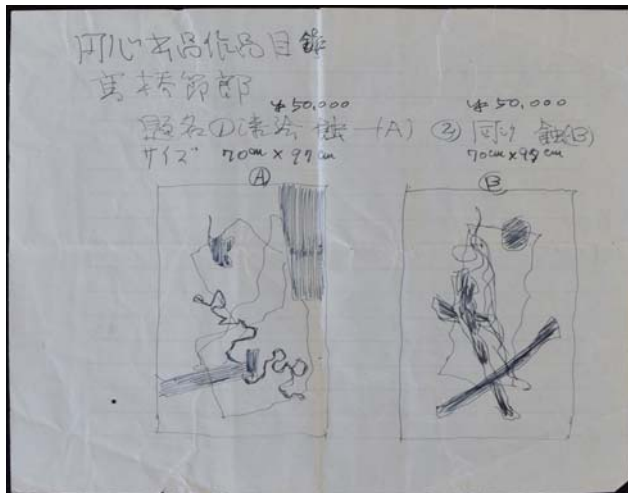 出品作品目録
高橋節郎
¥50,000 ¥50,000
題名①漆絵 蝕-(A) ② 同り 蝕(B)
サイズ 70cm×97cm 70cm×95cm
Ⓐ Ⓑ